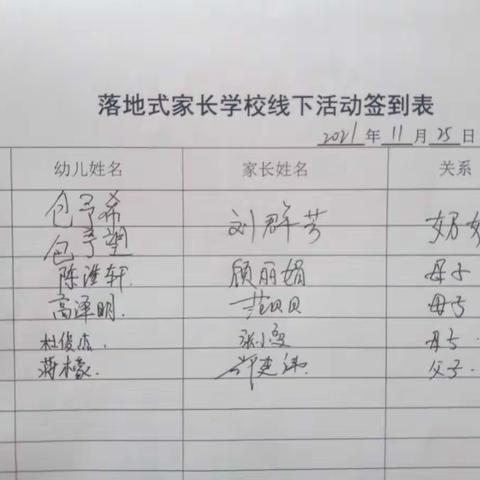 落地式家长学校线下活动签到表
2021年11月25日
幼儿姓名 家长姓名 关系
包予希 刘群芳 奶奶
包予望
陈浩轩. 顾丽娟 母子
高泽明. 范贝贝 母子
杜俊杰. 母子.
蒋檬. 父子.